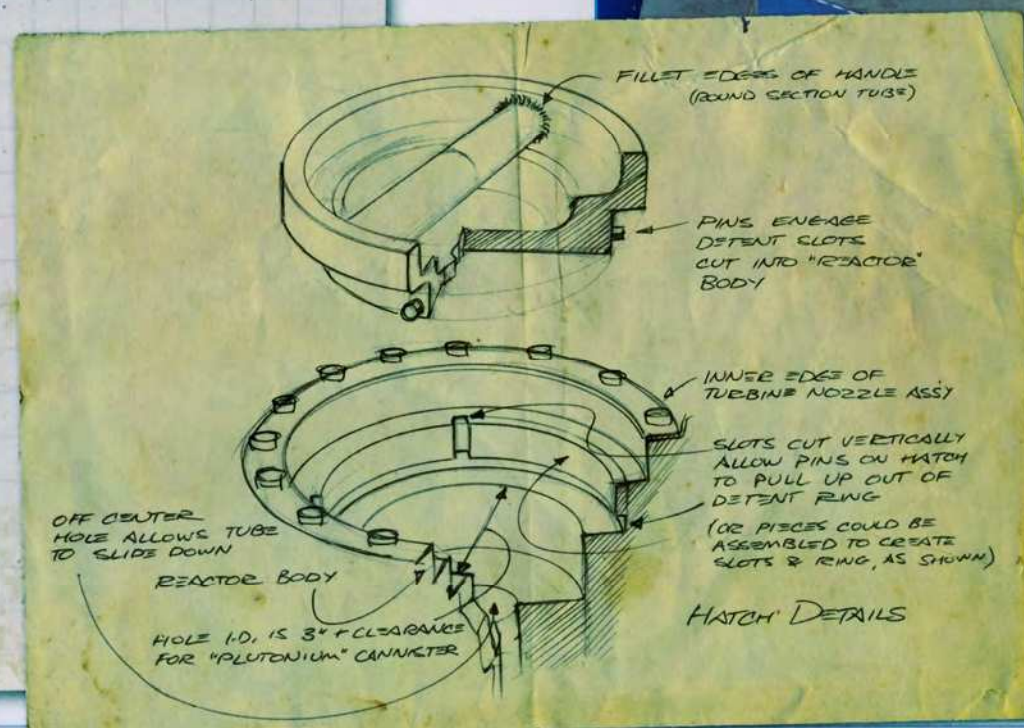 FILLET EDGES OF HANDLE
(ROUND SECTION TUBE)
PINS ENGAGE
DETENT SLOTS
CUT INTO "REACTOR"
BODY
INNER EDGE OF
TURBINE NOZZLE ASSY
SLOTS CUT VERTICALLY
ALLOW PINS ON HATCH
TO PULL UP OUT OF
DETENT RING
(OR PIECES COULD BE
ASSEMBLED TO CREATE
SLOTS & RING, AS SHOWN)
OFF CENTER
HOLE ALLOWS TUBE
TO SLIDE DOWN
REACTOR BODY
HOLE I.D. IS 3" + CLEARANCE
FOR "PLUTONIUM" CANNISTER
HATCH DETAILS